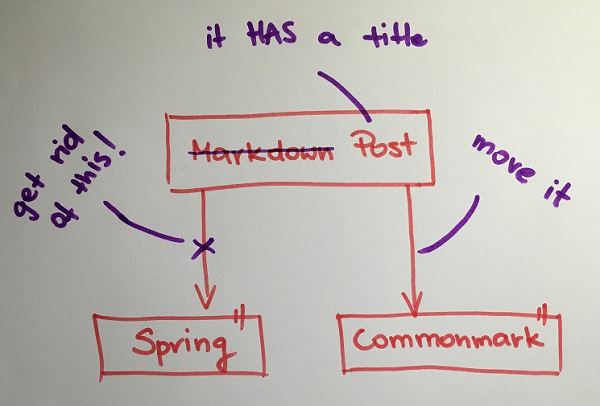 it HAS a title
Markdown Post
get rid
of this!
move it
Spring
Commonmark